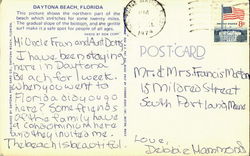 DAYTONA BEACH, FLORIDA
This picture shows the northern part of the beach which stretches for some twenty miles. The gradual slope of the beach, and the gentle surf make it a safe spot for people of all ages.
Hi Uncle Fran and Aunt Doris,
I have been staying
here in Daytona
Beach for 1 week.
When you went to
Florida did you go
here? Some friends
of the family have
a condominium here
and they invited me.
The beach is beautiful.
POST-CARD
Mr. & Mrs. Francis Morton
15 Mildred Street
South Portland, Maine
Love,
Debbie Hammons